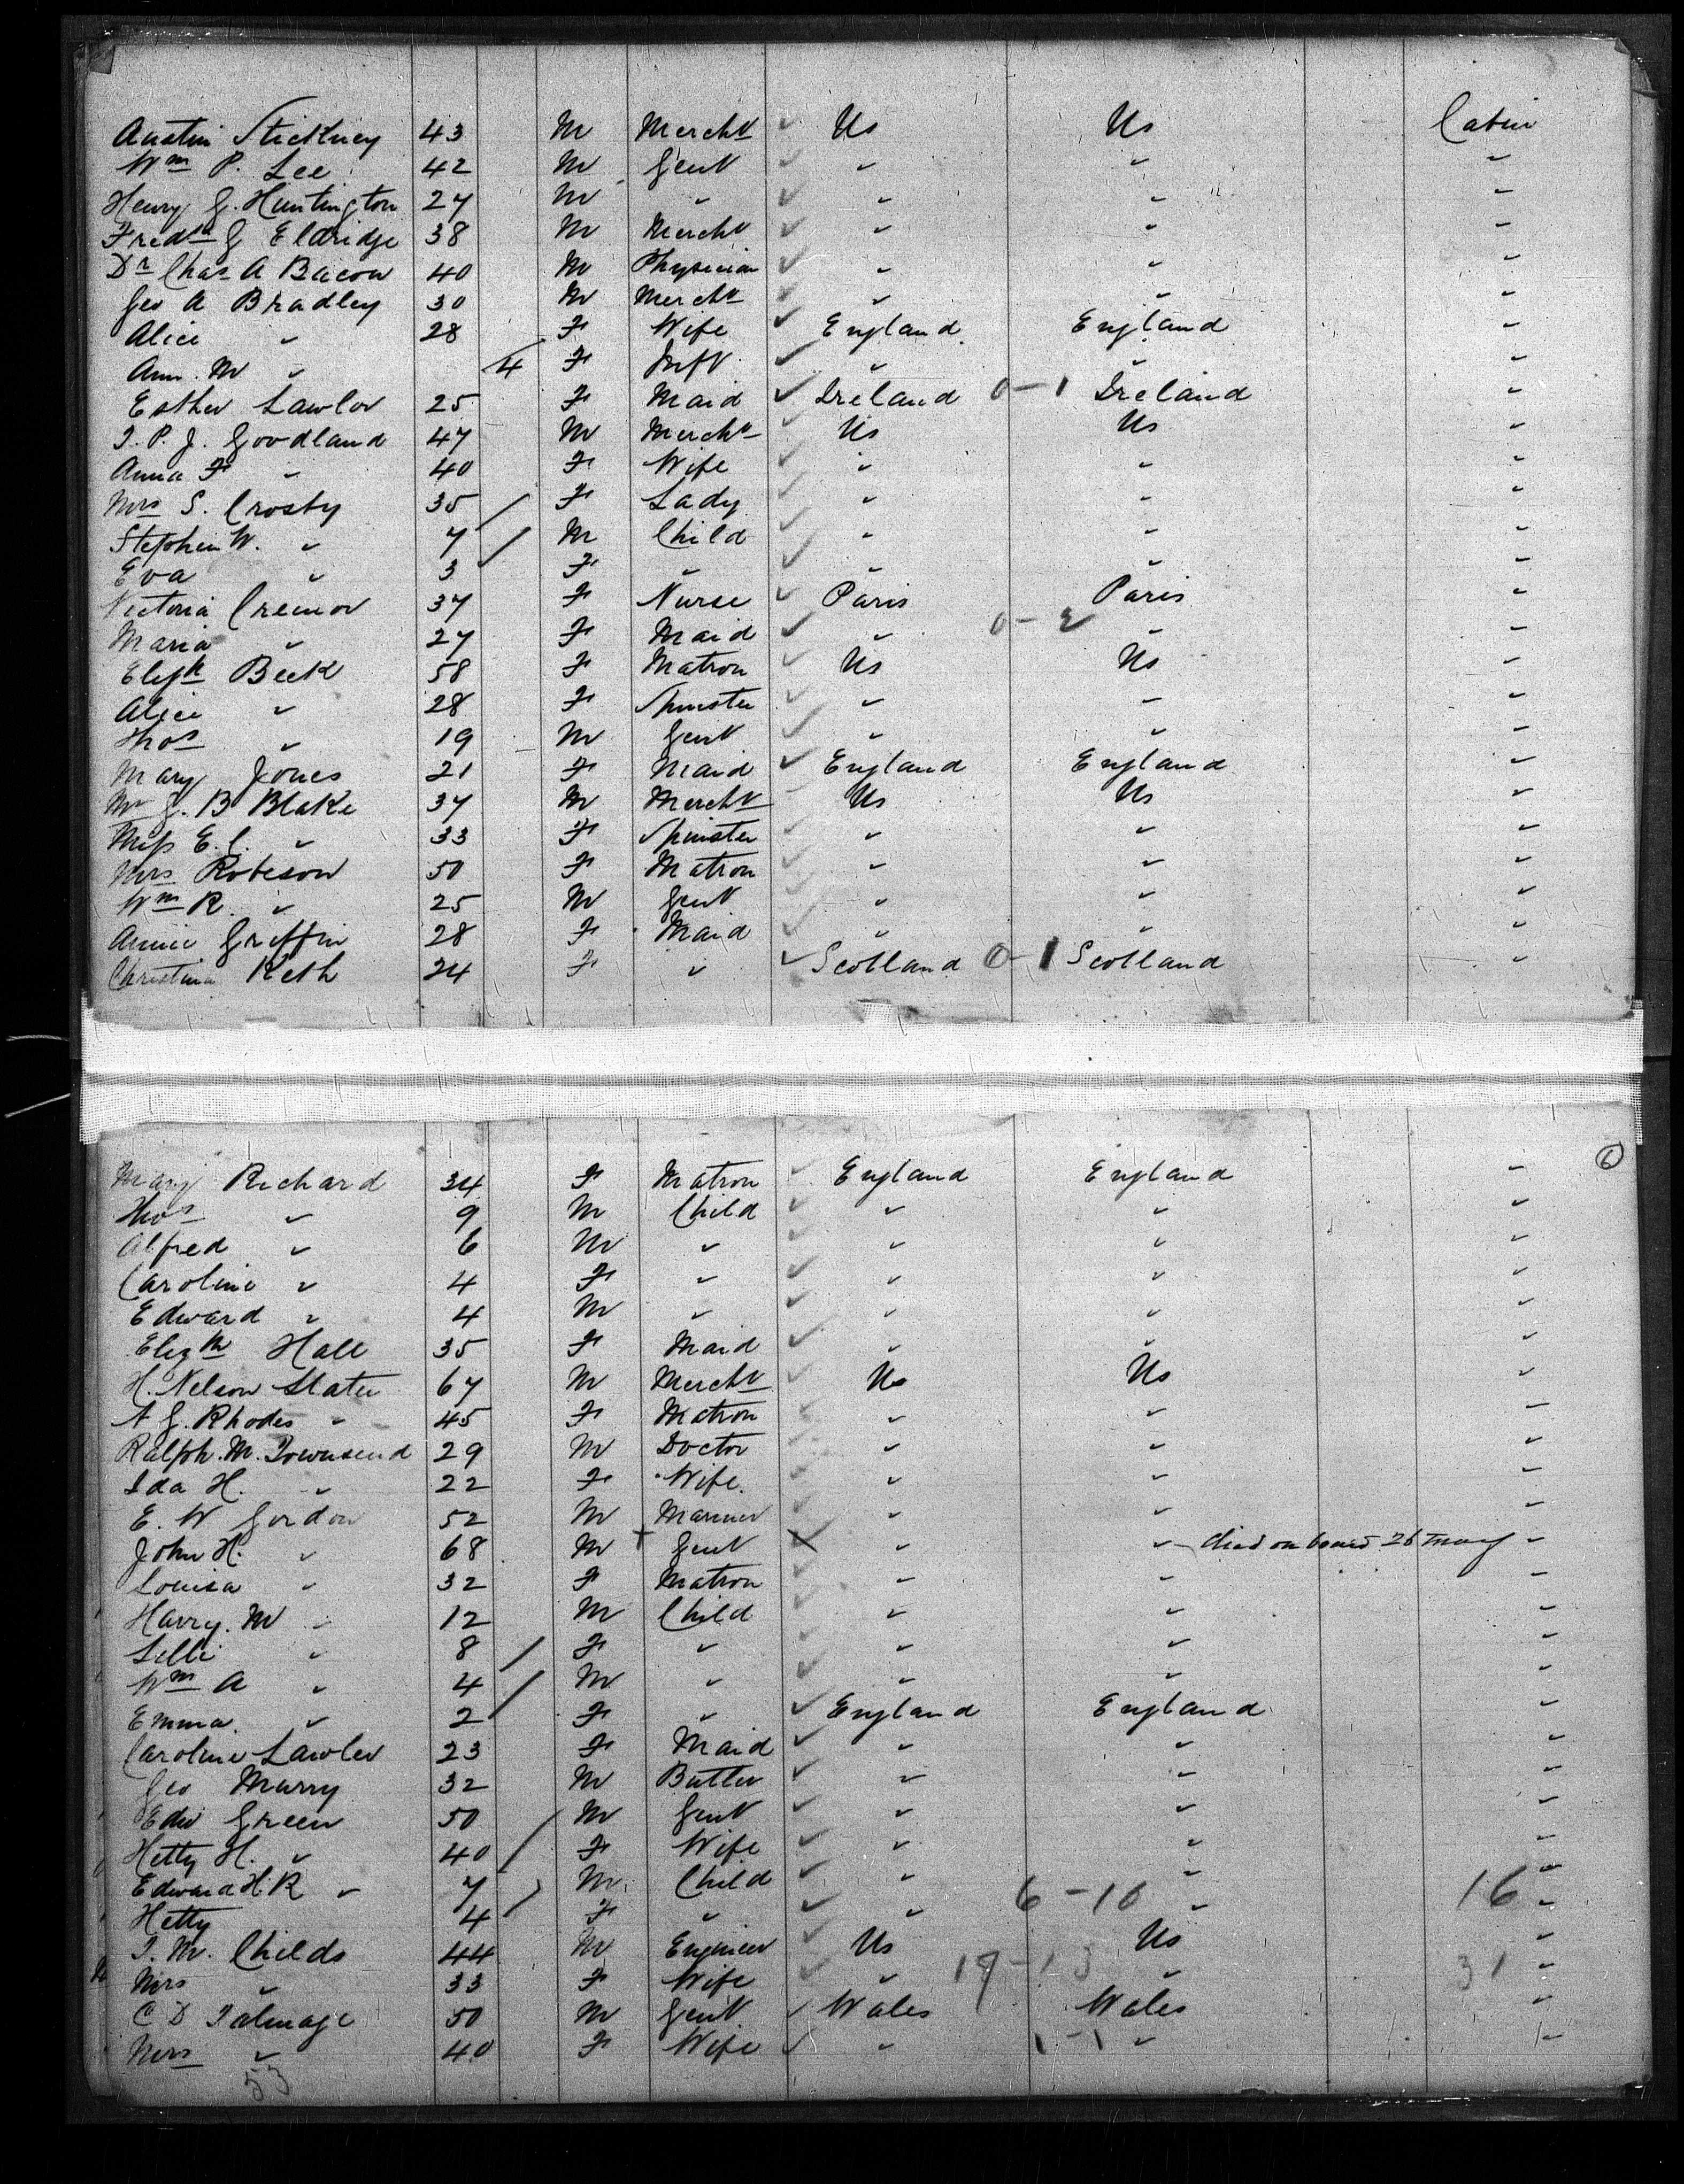 Austin Stickney 43 M Mercht ✓ Us Us Cabin
Wm P. Lee 42 M Gent ✓ " " "
Henry G. Huntington 27 M " ✓ " " "
Fredk G Eldridge 38 M Mercht ✓ " " "
Dr Chas A Bacon 40 M Physician ✓ " " "
Geo A Bradley 30 M Mercht ✓ " " "
Alice " 28 F Wife ✓ England England "
Ann. M " 4 F Inft ✓ " " "
Esther Lawlor 25 F Maid ✓ Ireland 0-1 Ireland "
T. P. J. Goodland 47 M Mercht ✓ Us Us "
Anna F " 40 F Wife ✓ " " "
Mrs S. Crosby 35 / F Lady ✓ " " "
Stephen W. " 7 / M Child ✓ " " "
Eva " 3 F " ✓ " " "
Victoria Cremor 37 F Nurse ✓ Paris Paris "
Maria " 27 F Maid ✓ " 0-2 " "
Elizh Beck 58 F Matron ✓ Us Us "
Alice " 28 F Spinster ✓ " " "
Thos " 19 M Gent ✓ " " "
Mary Jones 21 F Maid ✓ England England "
Mr J. B Blake 37 M Mercht ✓ Us Us "
Miss E. C. " 33 F Spinster ✓ " " "
Mrs Robeson 50 F Matron ✓ " " "
Wm R. " 25 M Gent ✓ " " "
Annie Griffin 28 F Maid ✓ " " "
Christina Keth 24 F " ✓ Scotland 0-1 Scotland "
6
Mary Richard 34 F Matron ✓ England England "
Thos " 9 M Child ✓ " " "
Alfred " 6 M " ✓ " " "
Caroline " 4 F " ✓ " " "
Edward " 4 M " ✓ " " "
Elizth Hall 35 F Maid ✓ " " "
H. Nelson Slater 67 M Mercht ✓ Us Us "
A G. Rhodes " 45 F Matron ✓ " " "
Ralph. M. Townsend 29 M Doctor ✓ " " "
Ida H. " 22 F Wife. ✓ " " "
E. W Gordon 52 M Mariner ✓ " " "
John H. " 68 M + Gent X " " died on board 26 May "
Louisa " 32 F Matron ✓ " " "
Harry. M " 12 M Child ✓ " " "
Lilli " 8 / F " ✓ " " "
Wm A " 4 / M " ✓ " " "
Emma. " 2 F " ✓ England England "
Caroline Lawler 23 F Maid ✓ " " "
Geo Murry 32 M Butler ✓ " " "
Edw Green 50 / M Gent ✓ " " "
Hetty H. " 40 / F Wife ✓ " " "
Edward H. R " 7 / M Child ✓ " " "
Hetty 4 F " ✓ " 6-10 " 16 "
T. M. Childs 44 M Engineer ✓ Us Us "
Mrs " 33 F Wife ✓ " 19-13 " 31 "
C D Talmage 50 M Gent ✓ Wales Wales "
Mrs " 40 F Wife ✓ " 1-1 " "
53